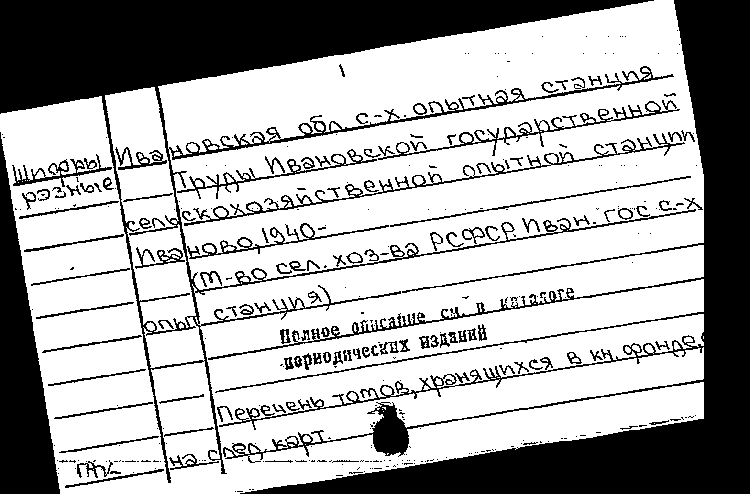 1
Ивановская обл. с-х. опытная станция
Шифры разные
Труды Ивановской государственной
сельскохозяйственной опытной станции
Иваново, 1940-
(М-во сел. хоз-ва РСФСР. Иван. гос с-х
опыт станция)
Полное описание см. в каталоге
периодических изданий
Перечень томов, хранящихся в кн. фонде,
на след. карт.